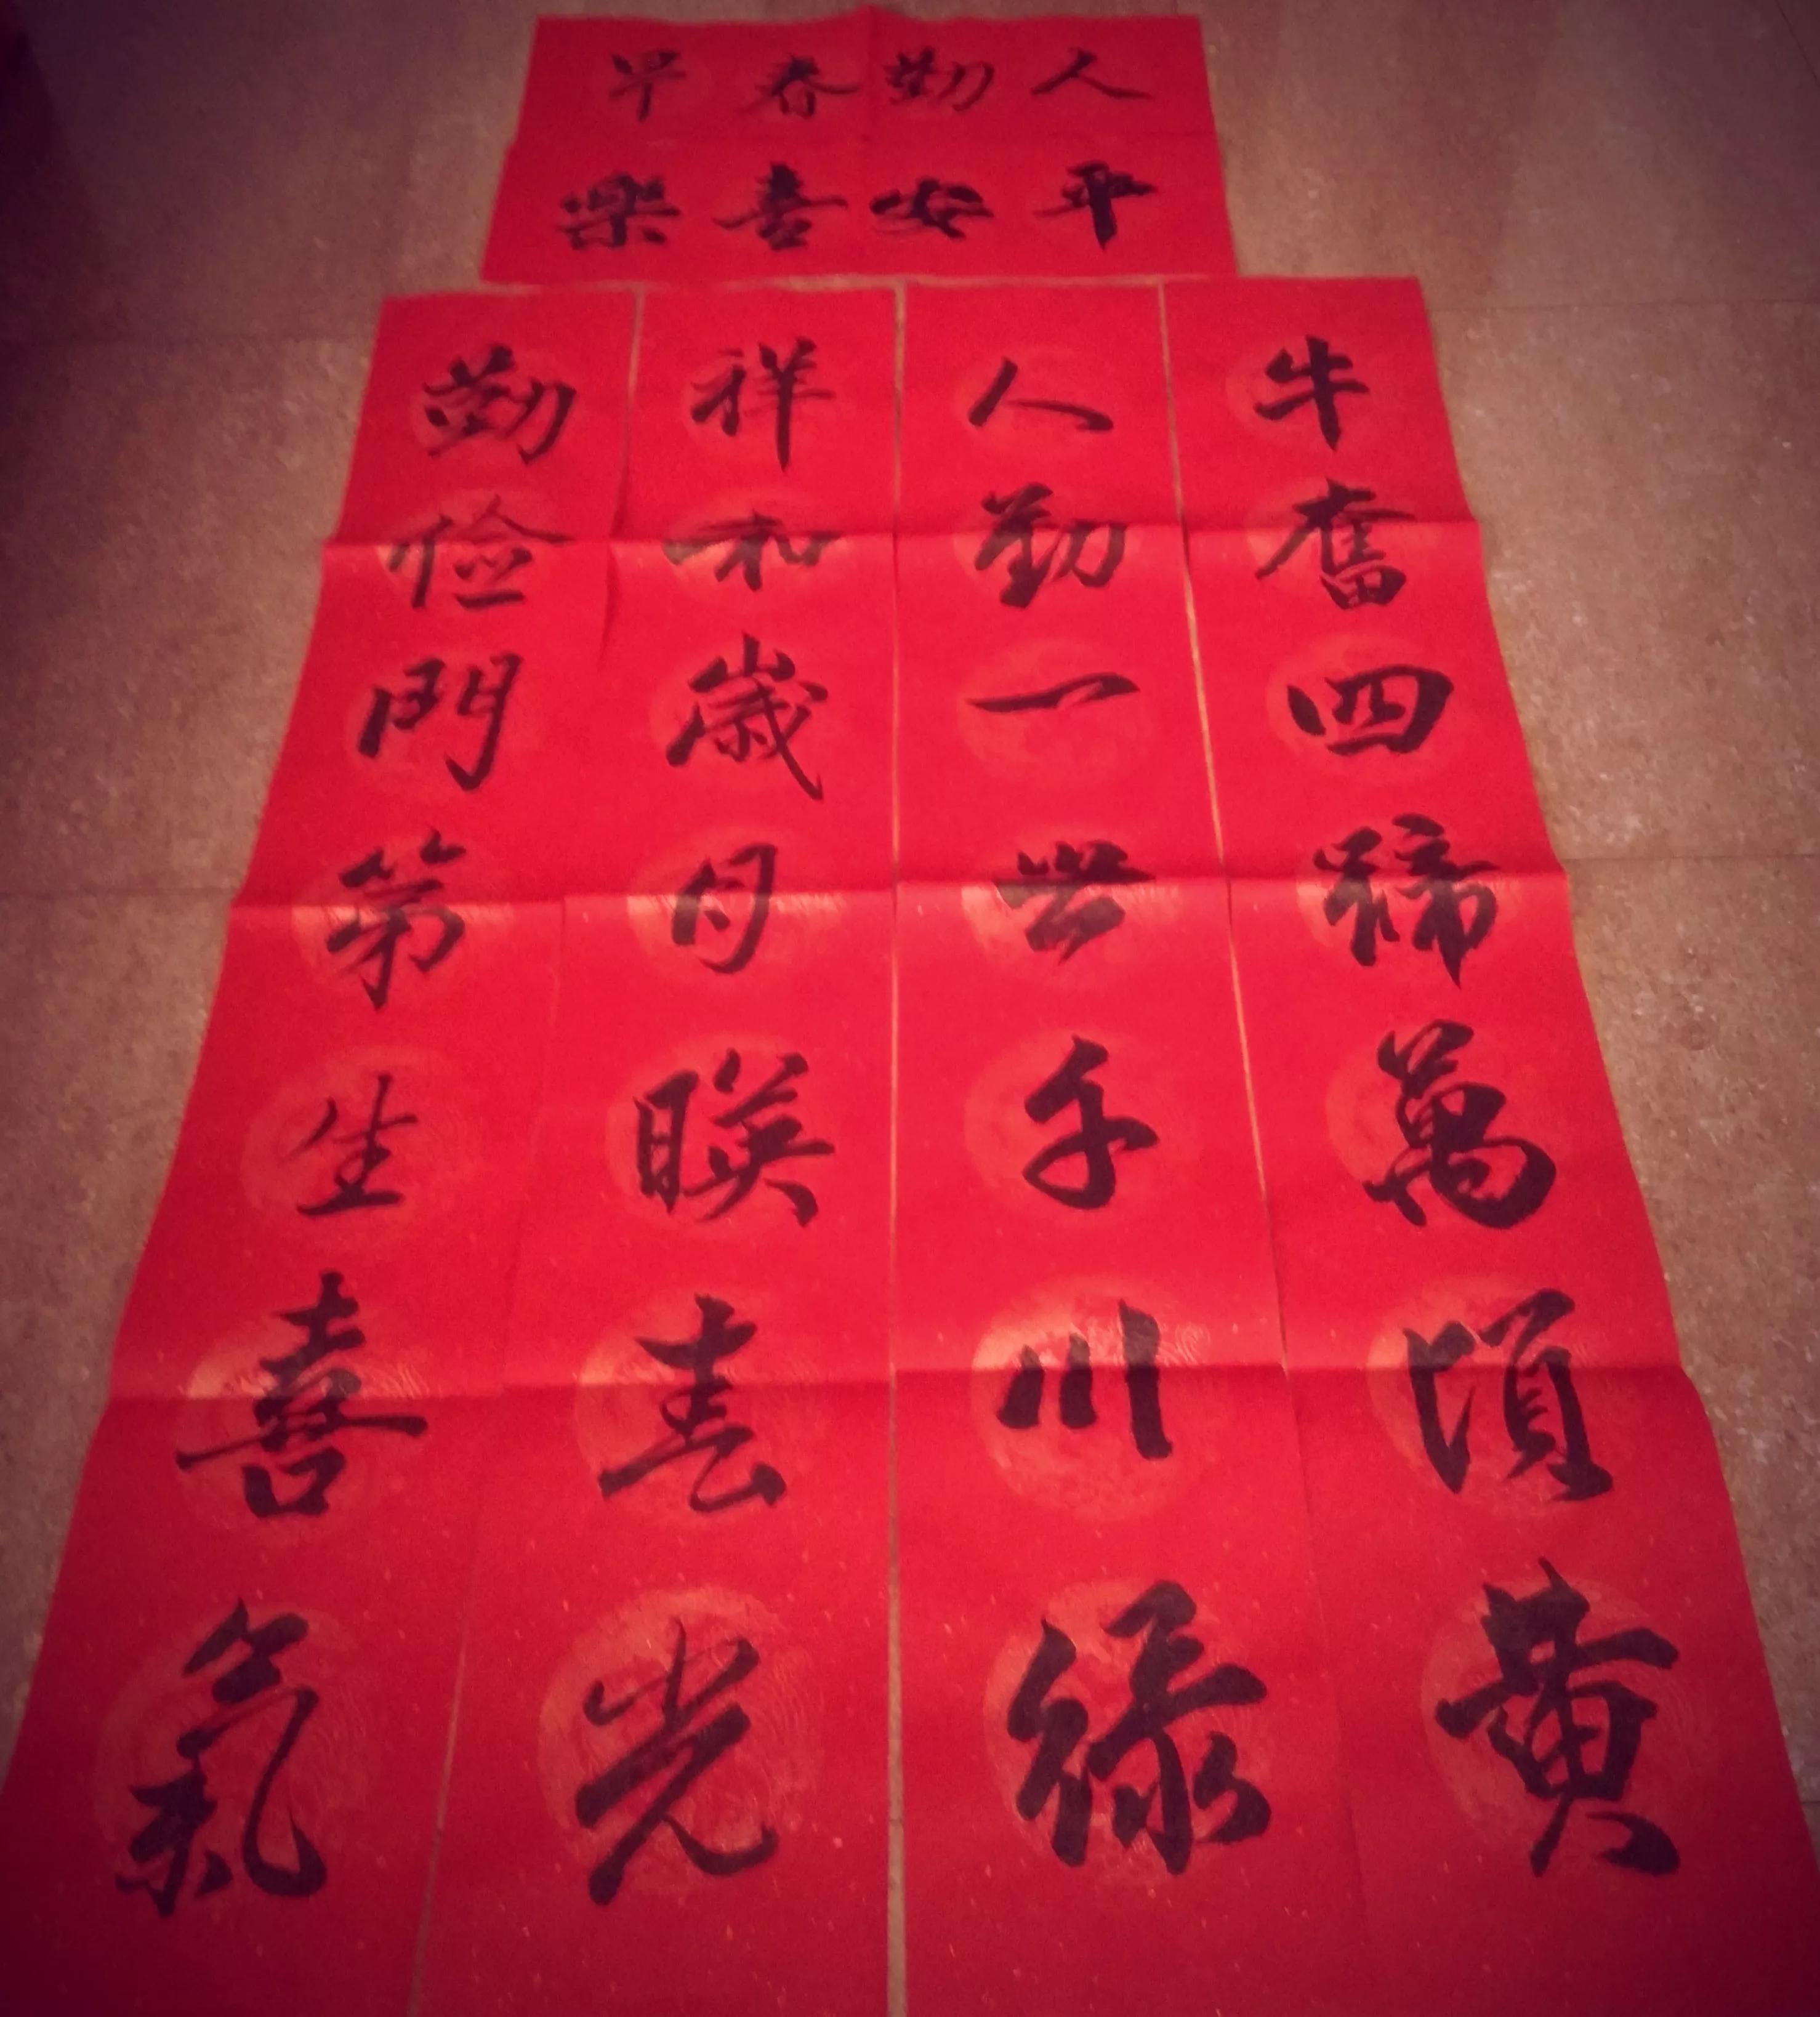 人勤春早
平安喜樂
牛奮四蹄萬頃黄
人勤一世千川緑
祥和歲月暎春光
勤俭門第生喜氣